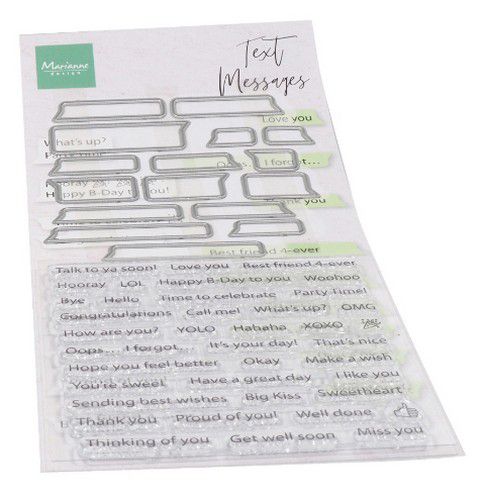 Marianne
design
Text
Messages
Love you
What's up?
Oops.... I forgot...
Hooray
Happy B-Day to you!
Thank you
Best friend 4-ever
Talk to ya soon! Love you Best friend 4-ever
Hooray LOL Happy B-Day to you Woohoo
Bye Hello Time to celebrate Party Time!
Congratulations Call me! What's up? OMG
How are you? YOLO Hahaha XOXO
Oops.... I forgot... It's your day! That's nice
Hope you feel better Okay Make a wish
You're sweet Have a great day I like you
Sending best wishes Big Kiss Sweetheart
Thank you Proud of you! Well done
Thinking of you Get well soon Miss you